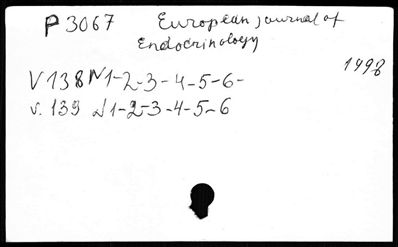 P 3067 European journal of
Endocrinology
1998
V 138 N 1-2-3-4-5-6-
v. 139 N 1-2-3-4-5-6